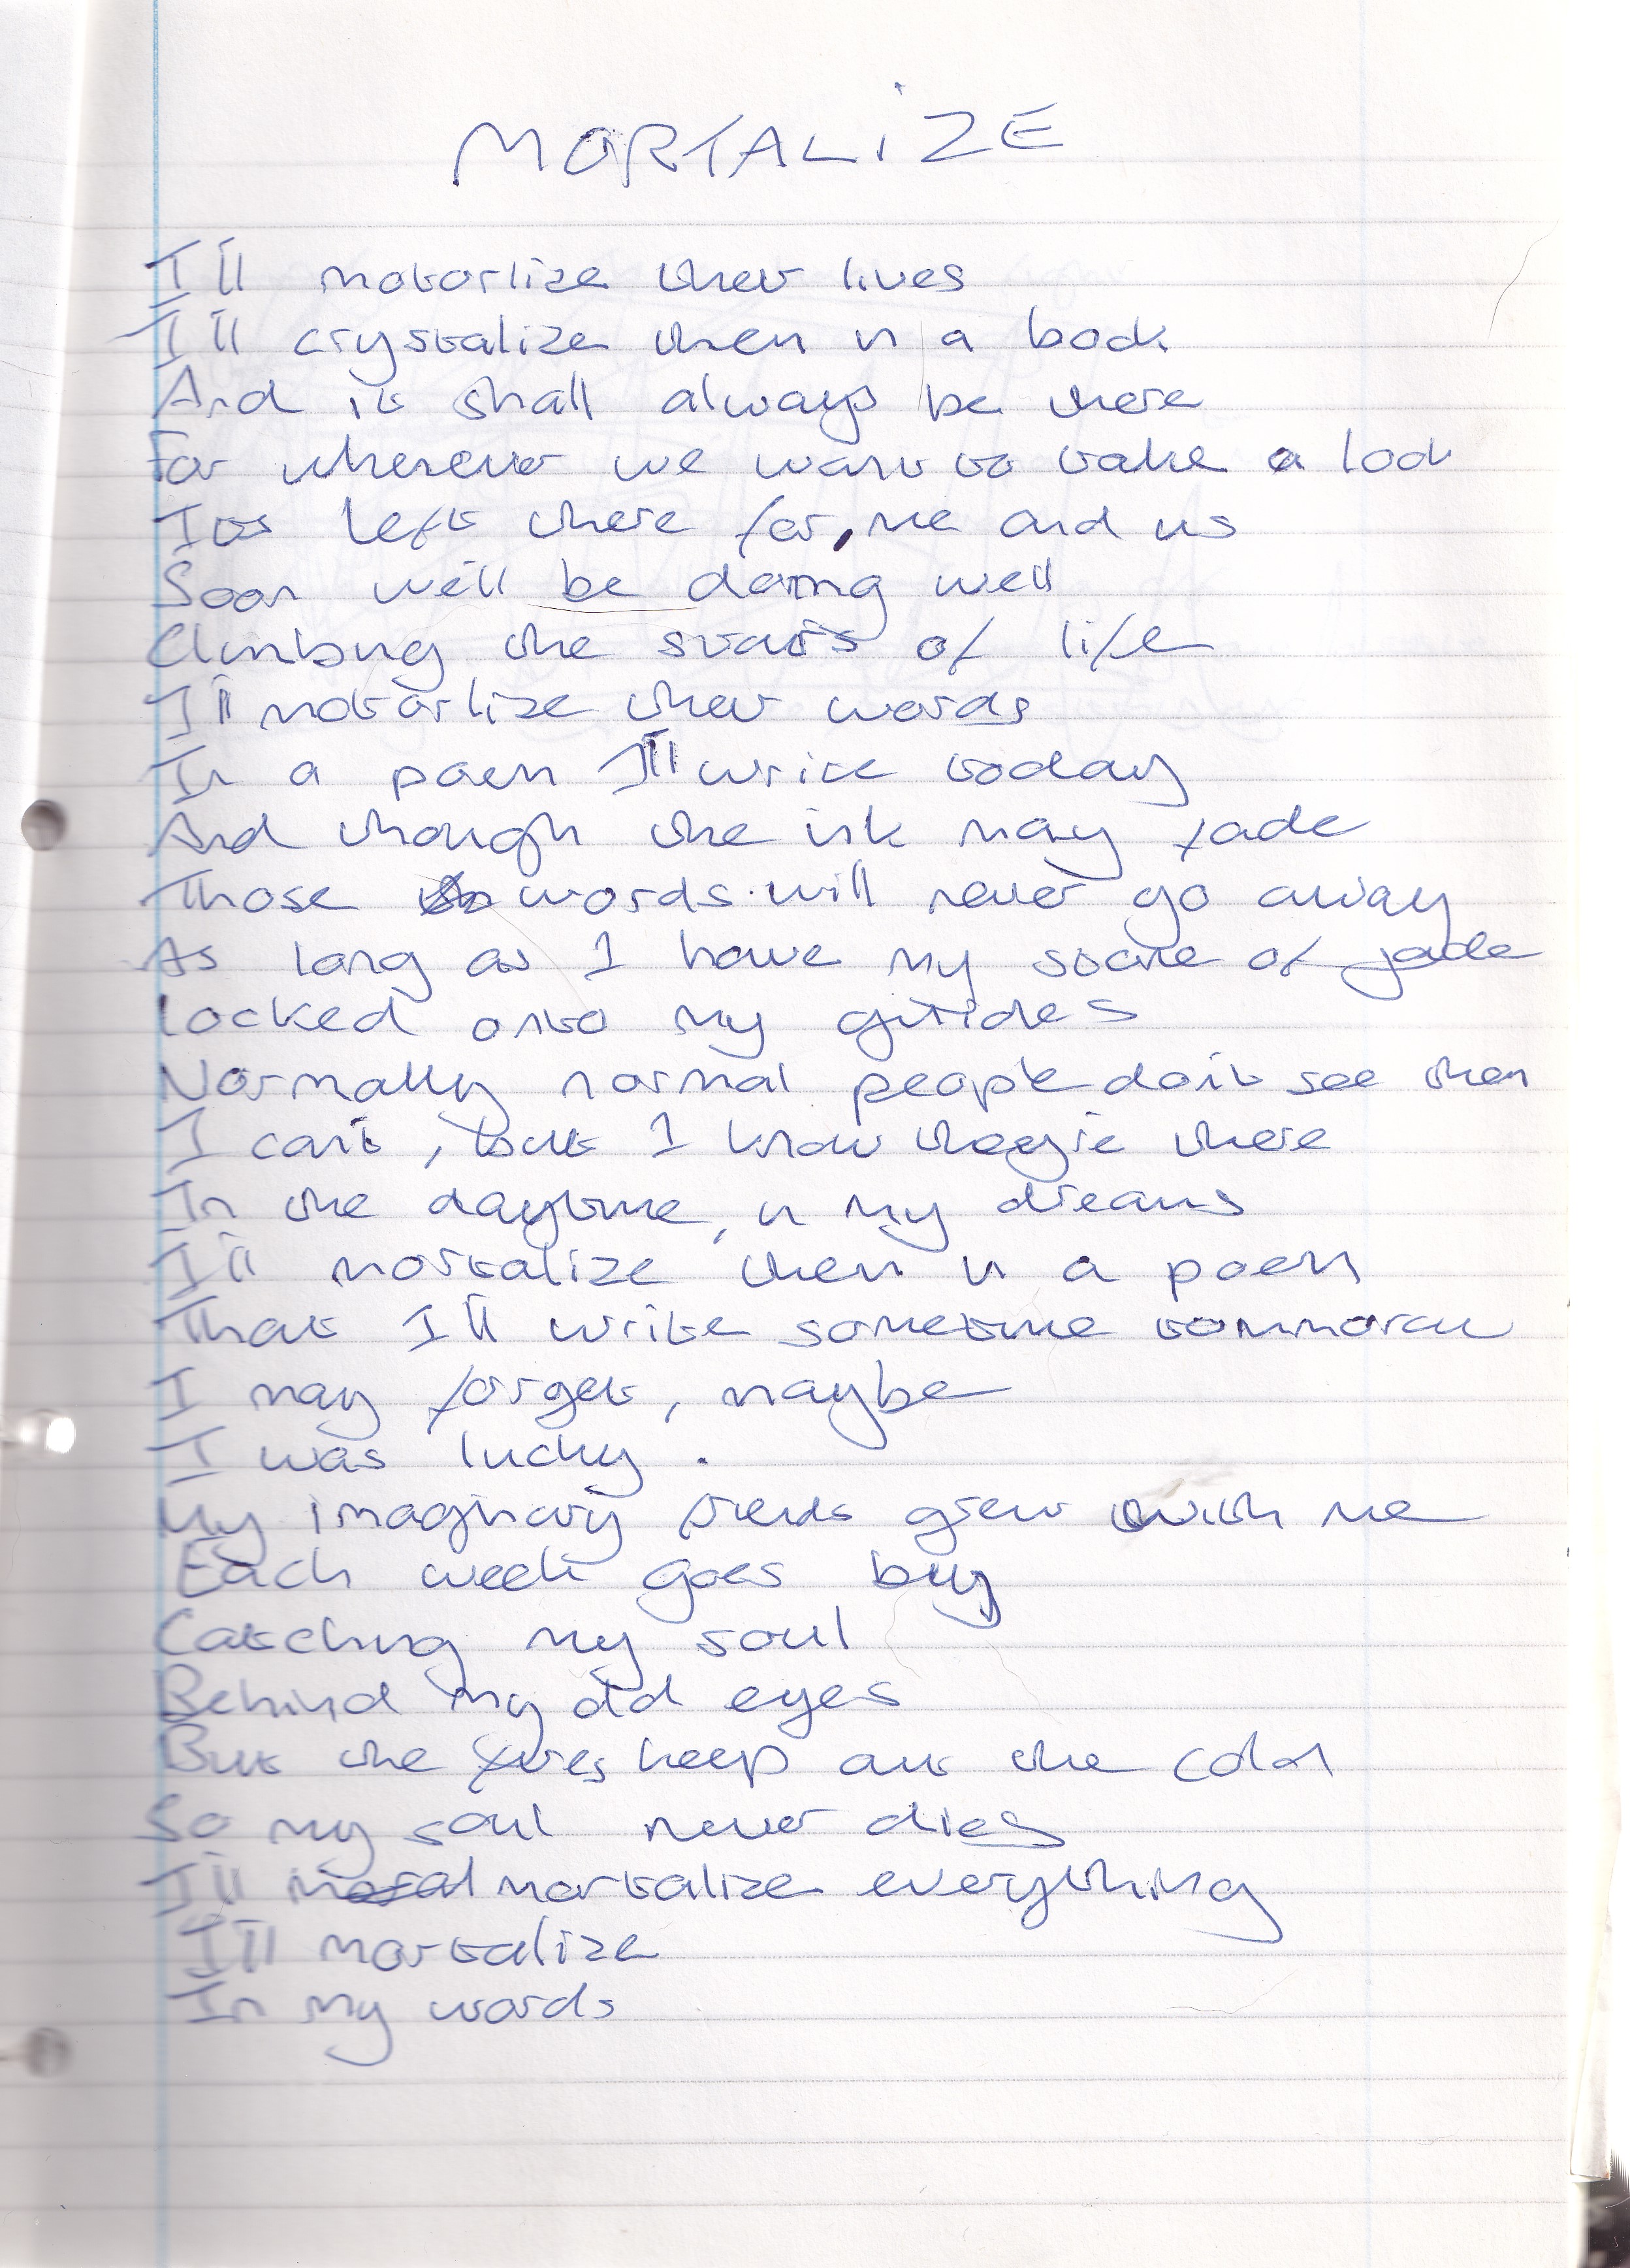 MORTALiZE
I'll motorlize their lives
I'll crystalize them in a book
And it shall always be there
For whenever we want to take a look
Its left there for, me and us
Soon we'll be doing well
Climbing the stairs of life
I'll motorlize their words
In a poem I'll write today
And though the ink may fade
Those words will never go away
As long as I have my stone of jade
Locked onto my
Normally normal people don't see them
I can't, but I know they're there
In the daytime, in my dreams
I'll mortalize them in a poem
That I'll write sometime tommorow
I may forget, maybe
I was lucky.
My imaginary friends grew with me
Each week goes buy
Catching my soul
Behind my old eyes
But the fires keep out the cold
So my soul never dies
I'll mortalize everything
I'll mortalize
In my words